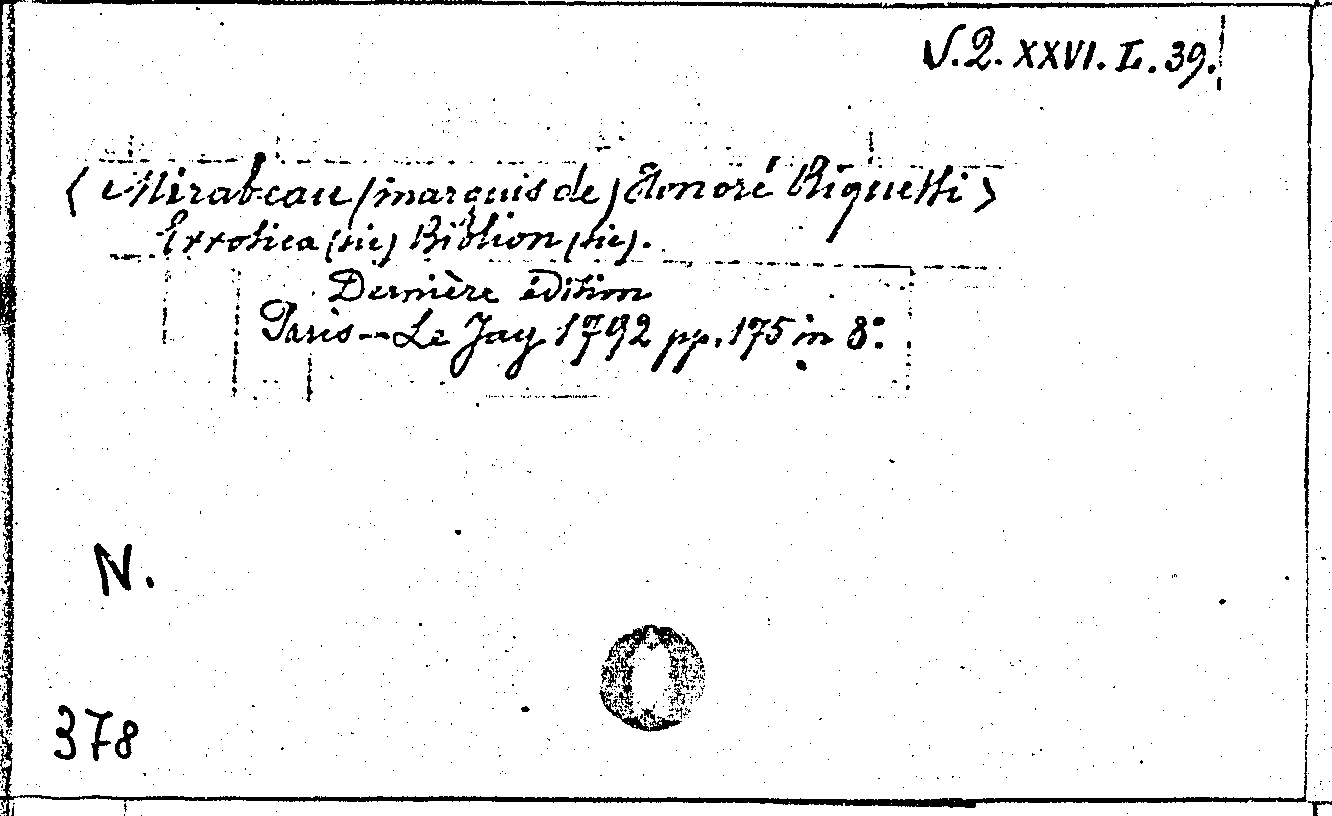 V.2. XXVI. L. 39.
< Mirabeau (marquis de) Honoré Riquetti >
Errotica (sic) Biblion (sic).
Dernière édition
Paris - Le Jay 1792 pp. 175 in 8°.
N.
378